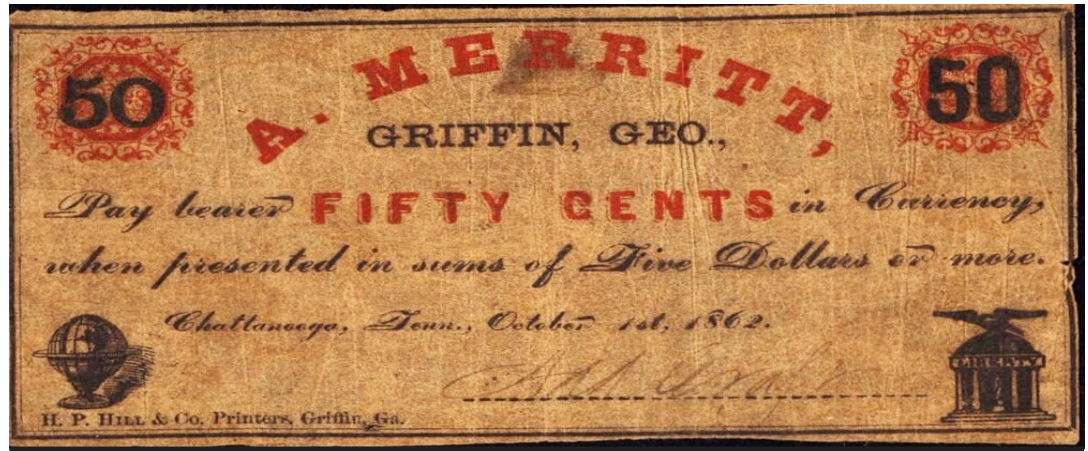 50 50
A. MERRITT,
GRIFFIN, GEO.,
Pay bearer FIFTY CENTS in Currency,
when presented in sums of Five Dollars or more.
Chattanooga, Tenn., October 1st, 1862.
LIBERTY
H. P. HILL & Co. Printers, Griffin, Ga.